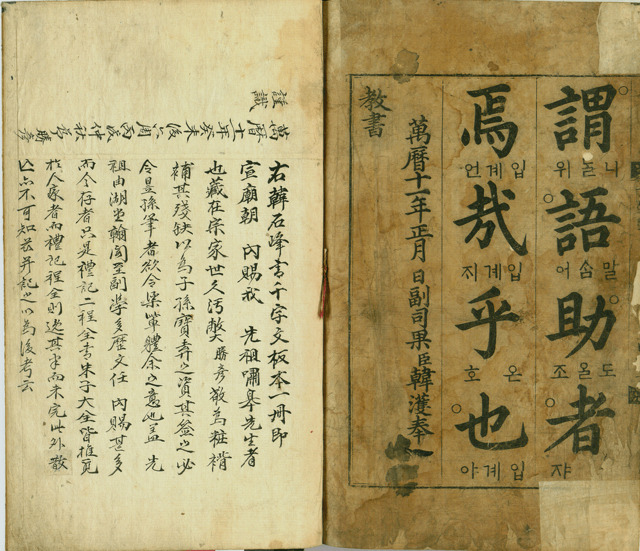 謂 위 니
語 어 솜 말
助 조 올 도
者 쟈
焉 언 계 입
哉 계 입
乎 호 온
也 야 계 입
萬曆十一年正月 日副司果臣韓濩奉
教書
右韓石峰書千字文板本一冊即
宣廟朝 內賜我 先祖嘯皐先生者
也藏在宗家世久污弊勝彦敬爲粧褙
補其殘缺以爲子孫寶弆之資其之必
令昱孫筆者欲令渠輩體余之意也盖 先
祖由湖堂翰閣至副學多歷文任 內賜甚多
而今存者只是禮記二程全書朱子大全皆推覓
於人家者而禮記程全則逸其半而未完此外散
亡亦不可知玆并記之以爲後考云
萬曆十一年癸未後周丙戌仲秋勝彦
謹識